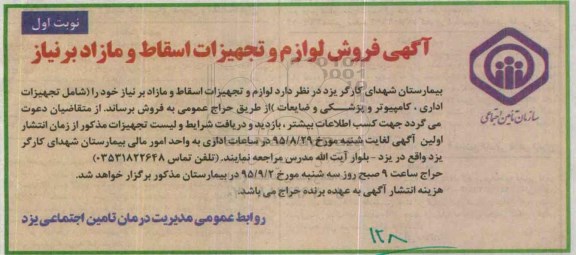 نوبت اول
آگهی فروش لوازم و تجهیزات اسقاط و مازاد بر نیاز
سازمان تأمین اجتماعی
بیمارستان شهدای کارگر یزد در نظر دارد لوازم و تجهیزات اسقاط و مازاد بر نیاز خود را (شامل تجهیزات
اداری ، کامپیوتر و پزشکی و ضایعات )از طریق حراج عمومی به فروش برساند. از متقاضیان دعوت
می گردد جهت کسب اطلاعات بیشتر ، بازدید و دریافت شرایط و لیست تجهیزات مذکور از زمان انتشار
اولین آگهی لغایت شنبه مورخ ۹۵/۸/۲۹ در ساعات اداری به واحد امور مالی بیمارستان شهدای کارگر
یزد واقع در یزد - بلوار آیت الله مدرس مراجعه نمایند. (تلفن تماس ۰۳۵۳۱۸۲۲۶۴۸)
حراج ساعت ۹ صبح روز سه شنبه مورخ ۹۵/۹/۲ در بیمارستان مذکور برگزار خواهد شد.
هزینه انتشار آگهی به عهده برنده حراج می باشد.
روابط عمومی مدیریت درمان تامین اجتماعی یزد
۱۲۸